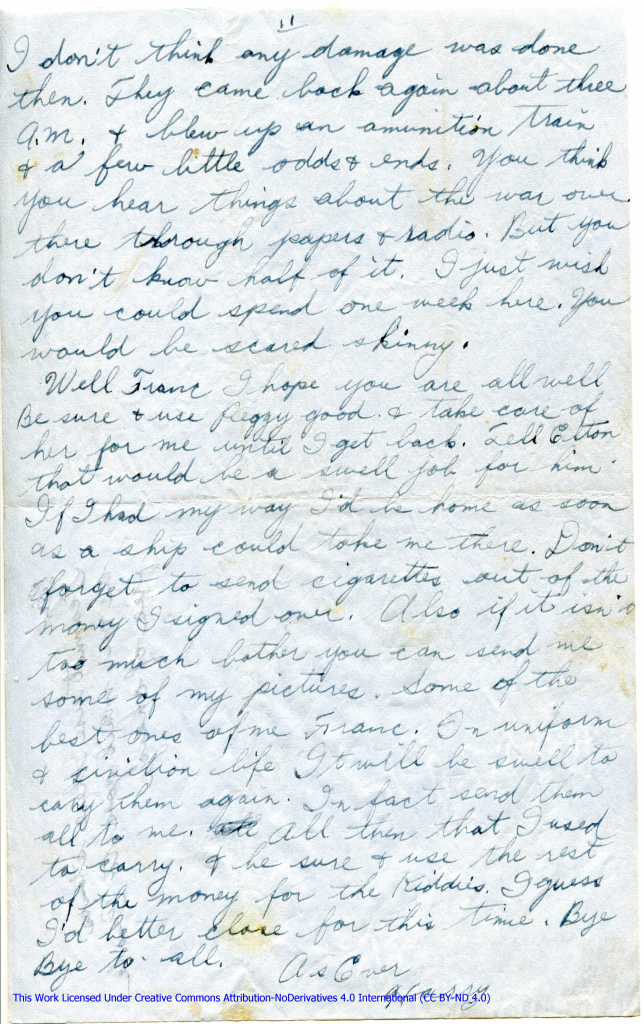 11
I don't think any damage was done
then. They came back again about three
a.m. & blew up an amunition train
& a few little odds & ends. You think
you hear things about the war over
there through papers & radio. But you
don't know half of it. I just wish
you could spend one week here. You
would be scared skinny.
Well Franc I hope you are all well
Be sure & use Peggy good & take care of
her for me until I get back. Tell Elton
that would be a swell job for him
If I had my way I'd be home as soon
as a ship could take me there. Don't
forget to send cigarettes out of the
money I signed over. Also if it isn't
too much bother you can send me
some of my pictures. Some of the
best ones of me Franc. In uniform
& civilion life It will be swell to
cary them again. In fact send them
all to me. All then that I used
to carry. & be sure & use the rest
of the money for the Kiddies. I guess
I'd better close for this time. Bye
Bye to all. As Ever
This Work Licensed Under Creative Commons Attribution-NoDerivatives 4.0 International (CC BY-ND 4.0)